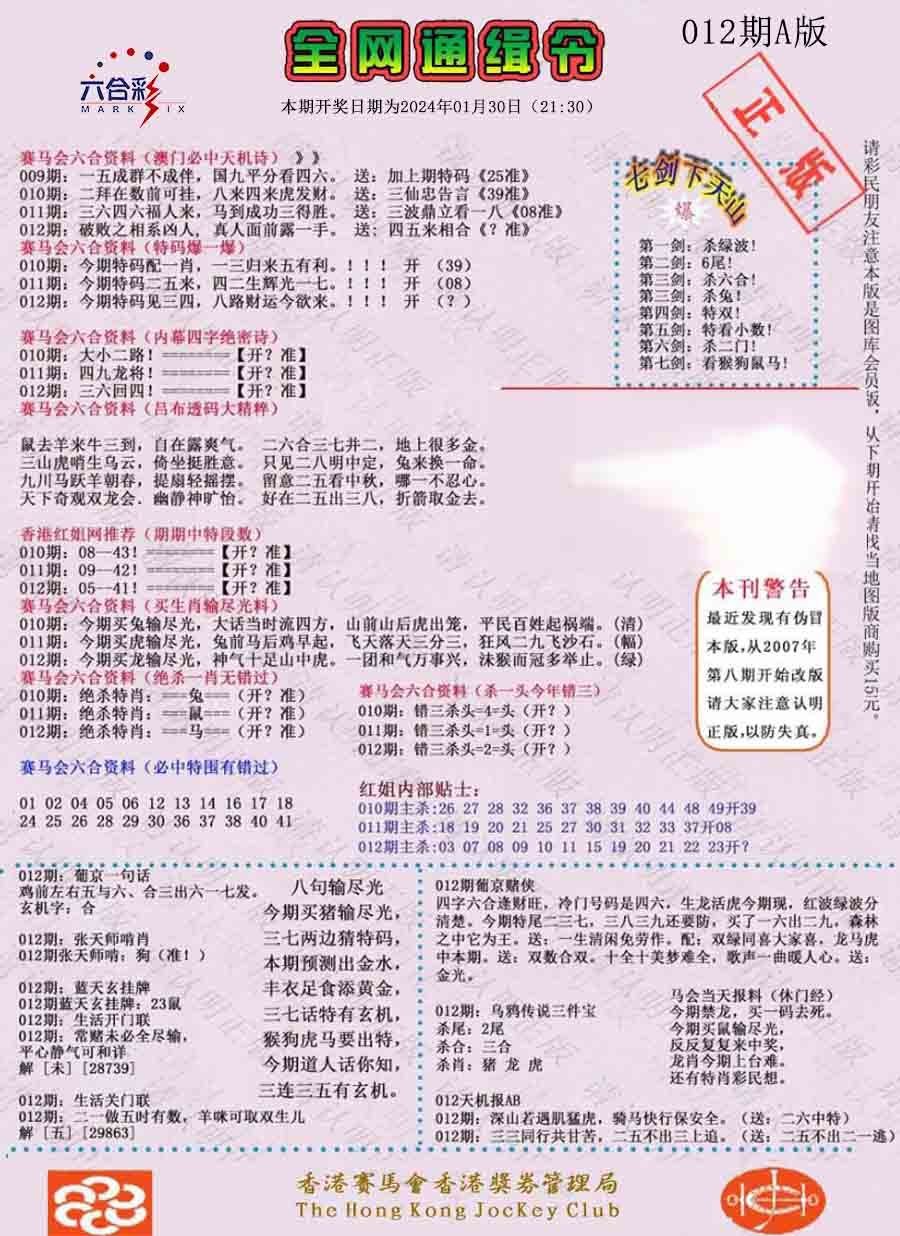 012期A版
全网通缉令
六合彩
MARK SIX
本期开奖日期为2024年01月30日（21:30）
正版
请彩民朋友注意本版是图库会员版，从下期开始请找当地图版商购买15元。
赛马会六合资料（澳门必中天机诗）》》
009期：一五成群不成伴，国九平分看四六。 送：加上期特码《25准》
010期：二拜在数前可挂，八来四来虎发财。 送：三仙忠告言《39准》
011期：三六四六福人来，马到成功三得胜。 送：三波鼎立看一八《08准》
012期：破败之相系凶人，真人面前露一手。 送：四五来相合《？准》
赛马会六合资料（特码爆一爆）
010期：今期特码配一肖，一三归来五有利。！！！ 开 （39）
011期：今期特码二五来，四二生辉光一七。！！！ 开 （08）
012期：今期特码见三四，八路财运今欲来。！！！ 开 （？）
七剑下天山
爆
第一剑：杀绿波！
第二剑：6尾！
第三剑：杀六合！
第三剑：杀兔！
第四剑：特双！
第五剑：特看小数！
第六剑：杀二门！
第七剑：看猴狗鼠马！
赛马会六合资料（内幕四字绝密诗）
010期：大小二路！========【开？准】
011期：四九龙将！========【开？准】
012期：三六回四！========【开？准】
赛马会六合资料（吕布透码大精粹）
鼠去羊来牛三到，自在露爽气。 二六合三七井二，地上很多金。
三山虎哨生乌云，倚坐挺胜意。 只见二八明中定，兔来换一命。
九川马跃羊朝春，提扇轻摇摆。 留意二五看中秋，哪一不忍心。
天下奇观双龙会．幽静神旷怡。 好在二五出三八，折箭取金去。
香港红姐网推荐（期期中特段数）
010期：08--43！========【开？准】
011期：09--42！========【开？准】
012期：05--41！========【开？准】
赛马会六合资料（买生肖输尽光料）
010期：今期买兔输尽光，大话当时流四方，山前山后虎出笼，平民百姓起祸端。(清)
011期：今期买虎输尽光，兔前马后鸡早起，飞天落天三分三，狂风二九飞沙石。(幅)
012期：今期买龙输尽光，神气十足山中虎。一团和气万事兴，沐猴而冠多举止。(绿)
本刊警告
最近发现有伪冒
本版，从2007年
第八期开始改版
请大家注意认明
正版，以防失真。
赛马会六合资料（绝杀一肖无错过）
010期：绝杀特肖：===兔===（开？准）
011期：绝杀特肖：===鼠===（开？准）
012期：绝杀特肖：===马===（开？准）
赛马会六合资料（杀一头今年错三）
010期：错三杀头=4=头（开？）
011期：错三杀头=1=头（开？）
012期：错三杀头=2=头（开？）
赛马会六合资料（必中特围有错过）
01 02 04 05 06 12 13 14 16 17 18
24 25 26 28 29 30 36 37 38 40 41
红姐内部贴士：
010期主杀:26 27 28 32 36 37 38 39 40 44 48 49开39
011期主杀:18 19 20 21 25 27 30 31 32 33 37开08
012期主杀:03 07 08 09 10 11 15 19 20 21 22 23开？
012期：葡京一句话
鸡前左右五与六、合三出六一七发。
玄机字：合
012期：张天师啃肖
012期张天师啃：狗（准！）
012期：蓝天玄挂牌
012期蓝天玄挂牌：23鼠
012期：生活开门联
012期：常赌未必全尽输，
平心静气可和详
解［未］[28739]
012期：生活关门联
012期：二一做五时有数，羊咪可取双生儿
解［五］[29863]
八句输尽光
今期买猪输尽光，
三七两边猜特码，
本期预测出金水，
丰衣足食添黄金，
三七话特有玄机，
猴狗虎马要出特，
今期道人话你知，
三连三五有玄机。
012期葡京赌侠
四字六合逢财旺，冷门号码是四六，生龙活虎今期现，红波绿波分
清楚。今期特尾二三七，三八三九还要防，买了一六出二九，森林
之中它为王。送：一生清闲免劳作。配：双绿同喜大家喜，龙马虎
中本期。送：双数合双。十全十美梦难全，歌声一曲暖人心。送：
金光。
012期：乌鸦传说三件宝
杀尾：2尾
杀合：三合
杀肖：猪 龙 虎
马会当天报料（休门经）
今期禁龙，买一码去死。
今期买鼠输尽光，
反反复复来中奖，
龙肖今期上台难。
还有特肖彩民想。
012天机报AB
012期：深山若遇肌猛虎，骑马快行保安全。（送：二六中特）
012期：三三同行共甘苦，二五不出三上追。（送：二五不出二一逃）
香港賽馬會香港獎券管理局
The Hong Kong JocKey Club